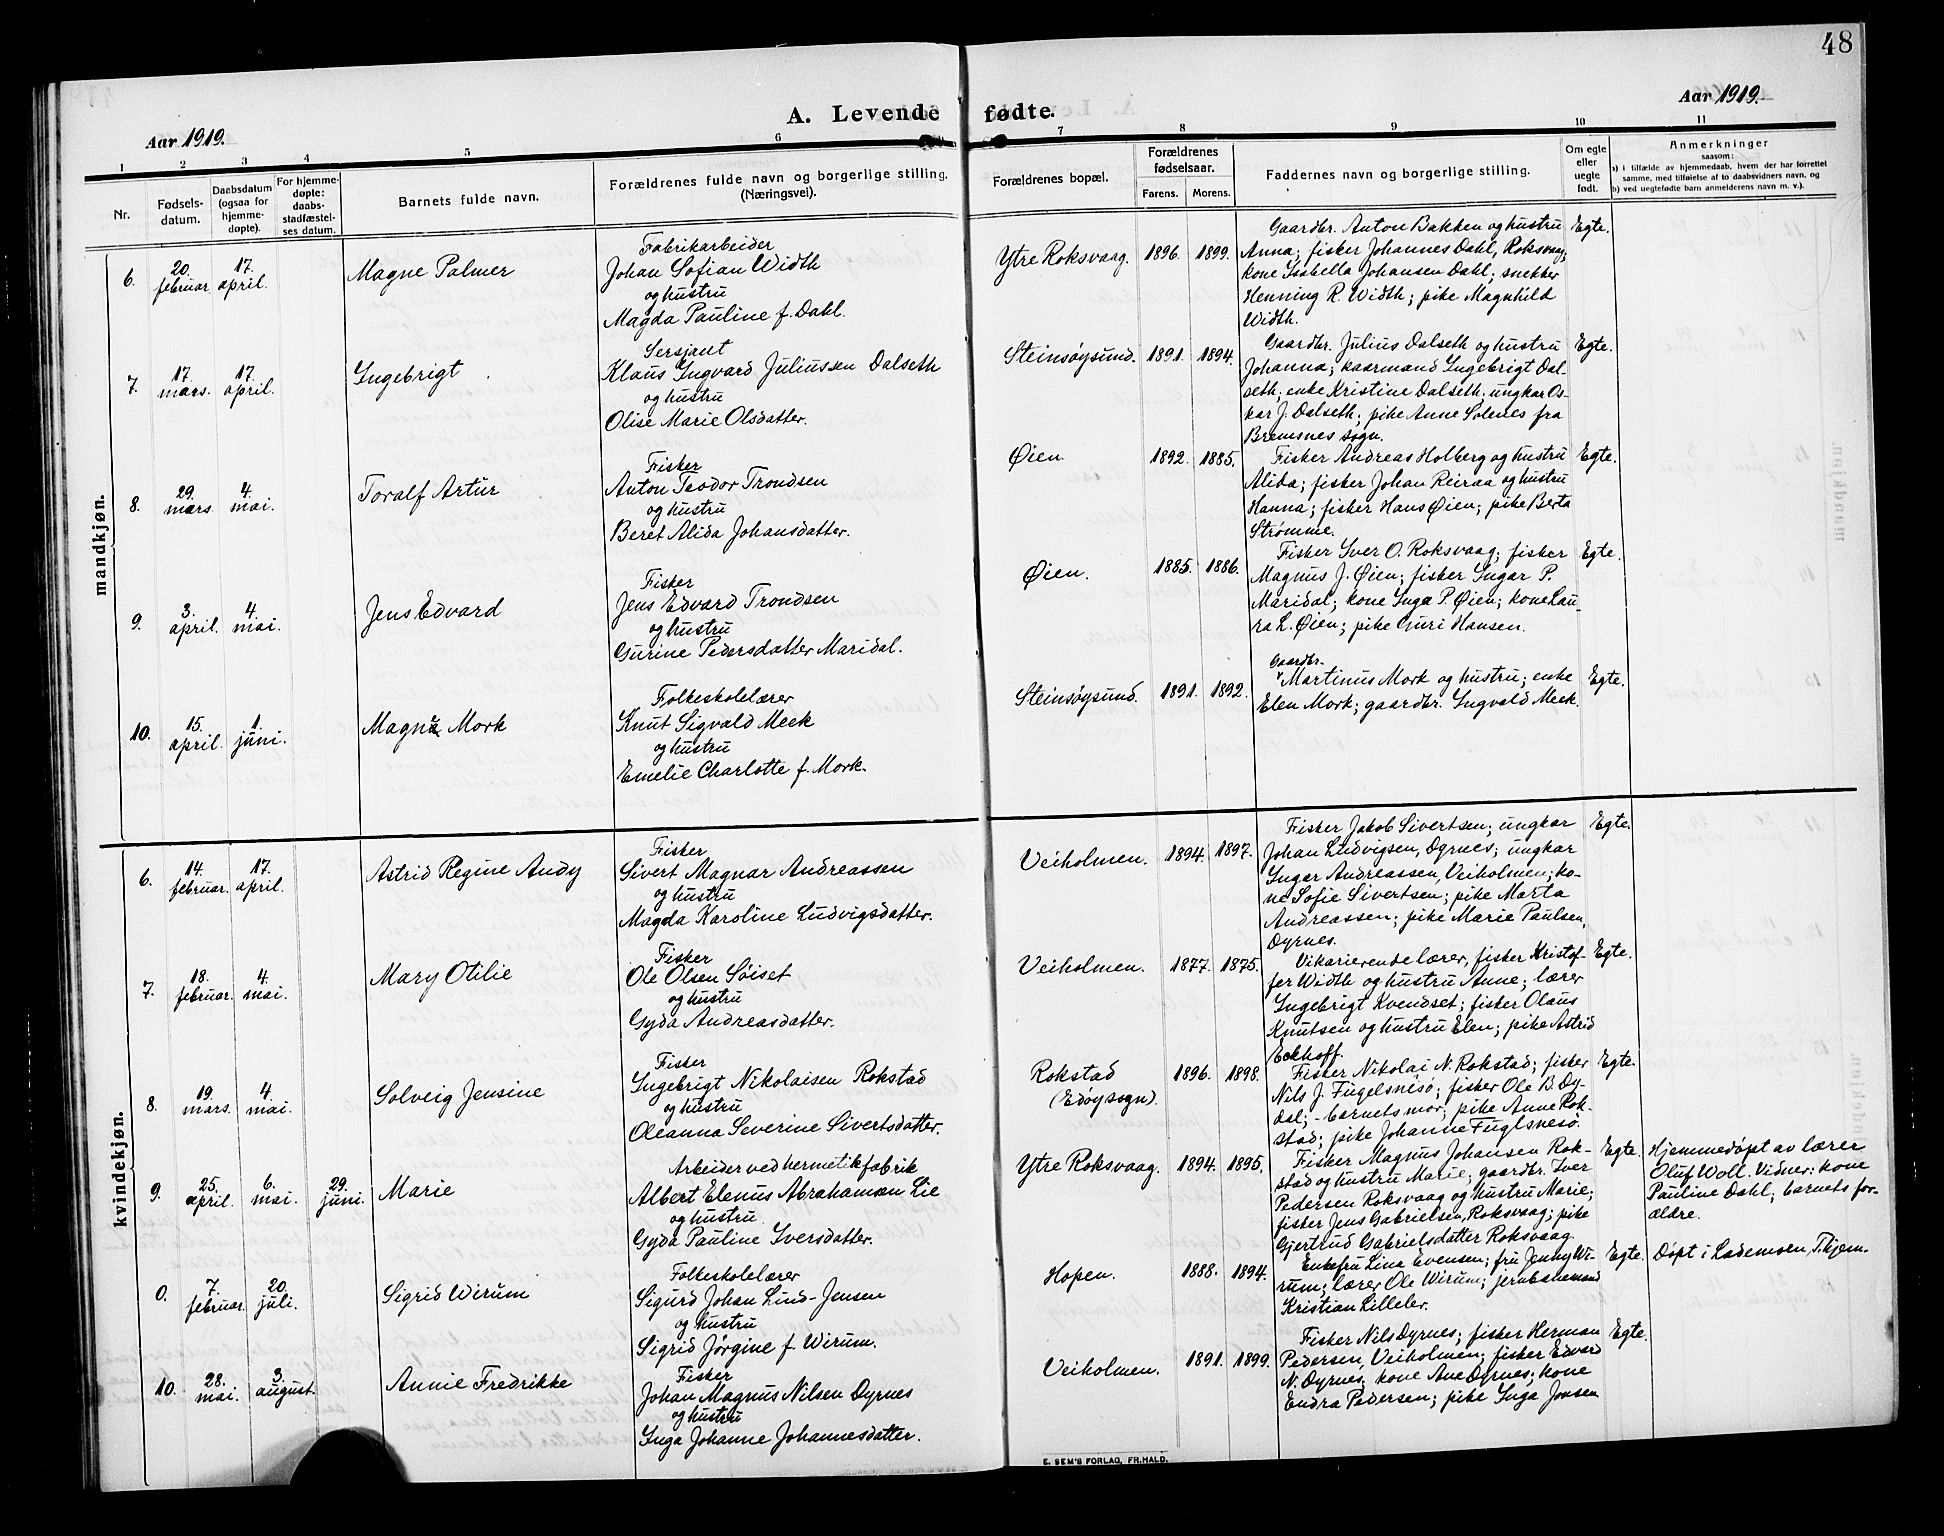 48
Aar 1919.
A. Levende fødte.
Aar 1919.
1 2 3 4 5 6 7 8 9 10 11
Nr.
Fødsels-
datum.
Daabsdatum
(ogsaa for
hjemme-
døpte).
For hjemme-
døpte:
daabs-
stadfæstel-
ses datum.
Barnets fulde navn.
Forældrenes fulde navn og borgerlige stilling.
(Næringsvei).
Forældrenes bopæl.
Forældrenes
fødselsaar.
Farens. Morens.
Faddernes navn og borgerlige stilling.
Om egte
eller
uegte
født.
Anmerkninger
saasom:
a) i tilfælde av hjemmedaab, hvem der har forrettet
samme, med tilføielse af to daabsvidners navn, og
b) ved uegtefødte barn anmelderens navn m. v.).
mandkjøn.
6.
20.
februar
17.
april.
Magne Palmer
Fabrikarbeider
Johan Sofian Width
og hustru
Magda Pauline f. Dahl.
Ytre Roksvaag. 1896. 1899.
Gaardbr. Anton Bakken og hustru
Anna; fisker Johannes Dahl, Roksvaag;
kone Isabella Johansen Dahl; snekker
Henning R. Width; pike Magnhild
Width.
Egte.
7.
17.
mars.
17.
april.
Ingebrigt
Sersjant
Klaus Ingvard Juliussen Dalseth
og hustru
Olise Marie Olsdatter.
Steinsøysund. 1891. 1894.
Gaardbr. Julius Dalseth og hustru
Johanna; kaarmand Ingebrigt Dal-
seth; enke Kristine Dalseth; ungkar Os-
kar J. Dalseth; pike Anne Solenes fra
Bremsnes sogn.
Egte.
8.
29.
mars
4.
mai.
Toralf Artur
Fisker
Anton Teodor Trondsen
og hustru
Beret Alida Johansdatter.
Øien 1892. 1885.
Fisker Andreas Holberg og hustru
Alida; fisker Johan Reiraa og hustru
Hanna; fisker Hans Øien; pike Berta
Strømme.
Egte.
9.
3.
april.
4.
mai.
Jens Edvard
Fisker
Jens Edvard Trondsen
og hustru
Gurine Pedersdatter Maridal.
Øien. 1885. 1886.
Fisker Iver O. Roksvaag; fisker
Magnus J. Øien; fisker Ingar P.
Maridal; kone Inga P. Øien; kone Lau-
ra L. Øien; pike Guri Hansen.
Egte.
10.
15.
april.
1.
juni.
Mork
Folkeskolelærer
Knut Sigvald Meek
og hustru
Emelie Charlotte f. Mork.
Steinsøysund. 1891. 1892.
Gaardbr.
Martinus Mork og hustru; enke
Elen Mork; gaardbr. Ingvald Meek.
Egte.
kvindekjøn.
6.
14.
februar.
17.
april.
Astrid Regine Andy
Fisker
Sivert Magnar Andreassen
og hustru
Magda Karoline Ludvigsdatter.
Veiholmen. 1894. 1897.
Fisker Jakob Sivertsen; ungkar
Johan Ludvigsen, Dyrnes; ungkar
Ingar Andreassen, Veiholmen; ko-
ne Sofie Sivertsen; pike Marta
Andreassen; pike Marie Paulsen,
Dyrnes.
Egte.
7.
18.
februar.
4.
mai.
Mary Otilie
Fisker
Ole Olsen Søiset
og hustru
Gyda Andreasdatter.
Veiholmen. 1877. 1875.
Vikarierende lærer, fisker Kristof-
fer Width og hustru Anne; lærer
Ingebrigt Kvendset; fisker Olaus
Knutsen og hustru Elen; pike Astrid
Eckhoff.
Egte.
8.
19.
mars.
4.
mai.
Solveig Jensine
Fisker
Ingebrigt Nikolaisen Rokstad
og hustru
Oleanna Severine Sivertsdatter.
Rokstad
(Edøy sogn).
1896. 1898.
Fisker Nikolai N. Rokstad; fisker
Nils J. Fugelsnesø; fisker Ole B. Dy-
dal; - barnets mor; pike Anne Rok-
stad; pike Johanne Fuglsnesø.
Egte.
9.
25.
april.
6.
mai.
29.
juni.
Marie
Arbeider ved hermetikfabrik
Albert Elenus Abrahamsen Lie
og hustru
Gyda Pauline Iversdatter.
Ytre Roksvaag. 1894. 1895.
Fisker Magnus Johansen Rok-
stad og hustru Marie; gaardbr. Iver
Pedersen Roksvaag og hustru Marie;
fisker Jens Gabrielsen, Roksvaag; pike
Gjertrud Gabrielsdatter Roksvaag.
Egte.
Hjemmedøpt av lærer
Oluf Woll. Vidner: kone
Pauline Dahl; barnets for-
ældre.
0.
7.
februar.
20.
juli.
Sigrid Wirum
Folkeskolelærer
Sigurd Johan Lind-Jensen
og hustru
Sigrid Jørgine f. Wirum.
Hopen. 1888. 1894.
Enkefru Lina Evensen; fru Jenny Wi-
rum; lærer Ole Wirum; jernbanemand
Kristian Lilleler.
Egte.
Døpt i Lademoen, Tkjem.
10.
28.
mai.
3.
august
Annie Fredrikke
Fisker
Johan Magnus Nilsen Dyrnes
og hustru
Inga Johanne Johannesdatter.
Veiholmen. 1891. 1899.
Fisker Nils Dyrnes; fisker Herman
Pedersen, Veiholmen; fisker Edvard
N. Dyrnes; kone Ane Dyrnes; kone
Endra Pedersen; pike Inga Jonsen
Egte.
E. SEM'S FORLAG, FR.HALD.